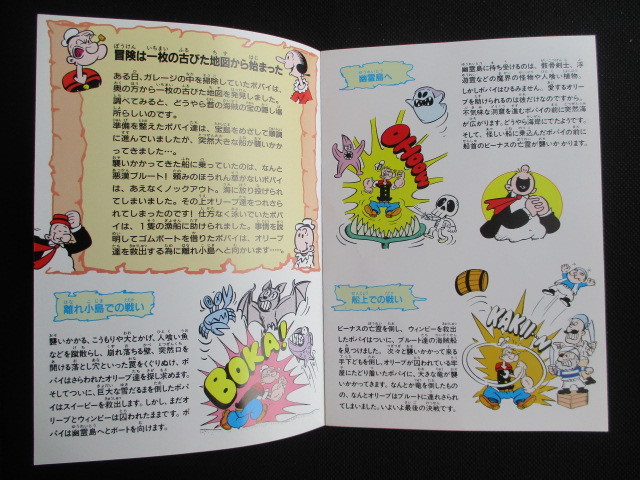 冒険は一枚の古びた地図から始まった
ある日、ガレージの中を掃除していたポパイは、
奥の方から一枚の古びた地図を発見しました。
調べてみると、どうやら昔の海賊の宝の隠し場
所らしいのです。
準備を整えたポパイ達は、宝島をめざして順調
に進んでいましたが、突然大きな船が襲いかか
ってきました…。
襲いかかってきた船に乗っていたのは、なんと
悪漢ブルート! 頼みのほうれん草がないポパイ
は、あえなくノックアウト。海に放り投げられ
てしまいました。その上オリーブ達をつれさら
れてしまったのです! 仕方なく泳いでいたポパ
イは、1隻の漁船に助けられました。事情を説
明してゴムボートを借りたポパイは、オリーブ
達を救出する為に離れ小島へと向かいます…。
離れ小島での戦い
襲いかかる、こうもりや大とかげ、人喰い魚
などを蹴散らし、崩れ落ちる壁、突然口を
開ける落とし穴といった罠をくぐりぬけ、ポ
パイはさらわれたオリーブ達を探し求めます。
そしてついに、巨大な雪だるまを倒したポパ
イはスイーピーを救出します。しかし、まだオ
リーブとウィンピーは囚われたままです。ポ
パイは幽霊島へとボートを向けます。
BOKA!
幽霊島へ
幽霊島に待ち受けるのは、骸骨剣士、浮
遊霊などの魔界の怪物や人喰い植物。
しかしポパイはひるみません。愛するオリー
ブを助けられるのは彼だけなのですから。
不気味な洞窟を進むポパイの前に突然海
が広がります。どうやら海岸にでたようです。
そして、怪しい船に乗込んだポパイの前に
船首のビーナスの亡霊が襲いかかります。
船上での戦い
ビーナスの亡霊を倒し、ウィンピーを救出
したポパイはついに、ブルート達の海賊船
を見つけました。次々と襲いかかって来る
手下どもを倒し、オリーブが囚われている牢
屋にたどり着いたポパイに、大きな竜が襲
いかかってきます。なんとか竜を倒したもの
の、なんとオリーブはブルートに連れされら
てしまいました。いよいよ最後の決戦です。